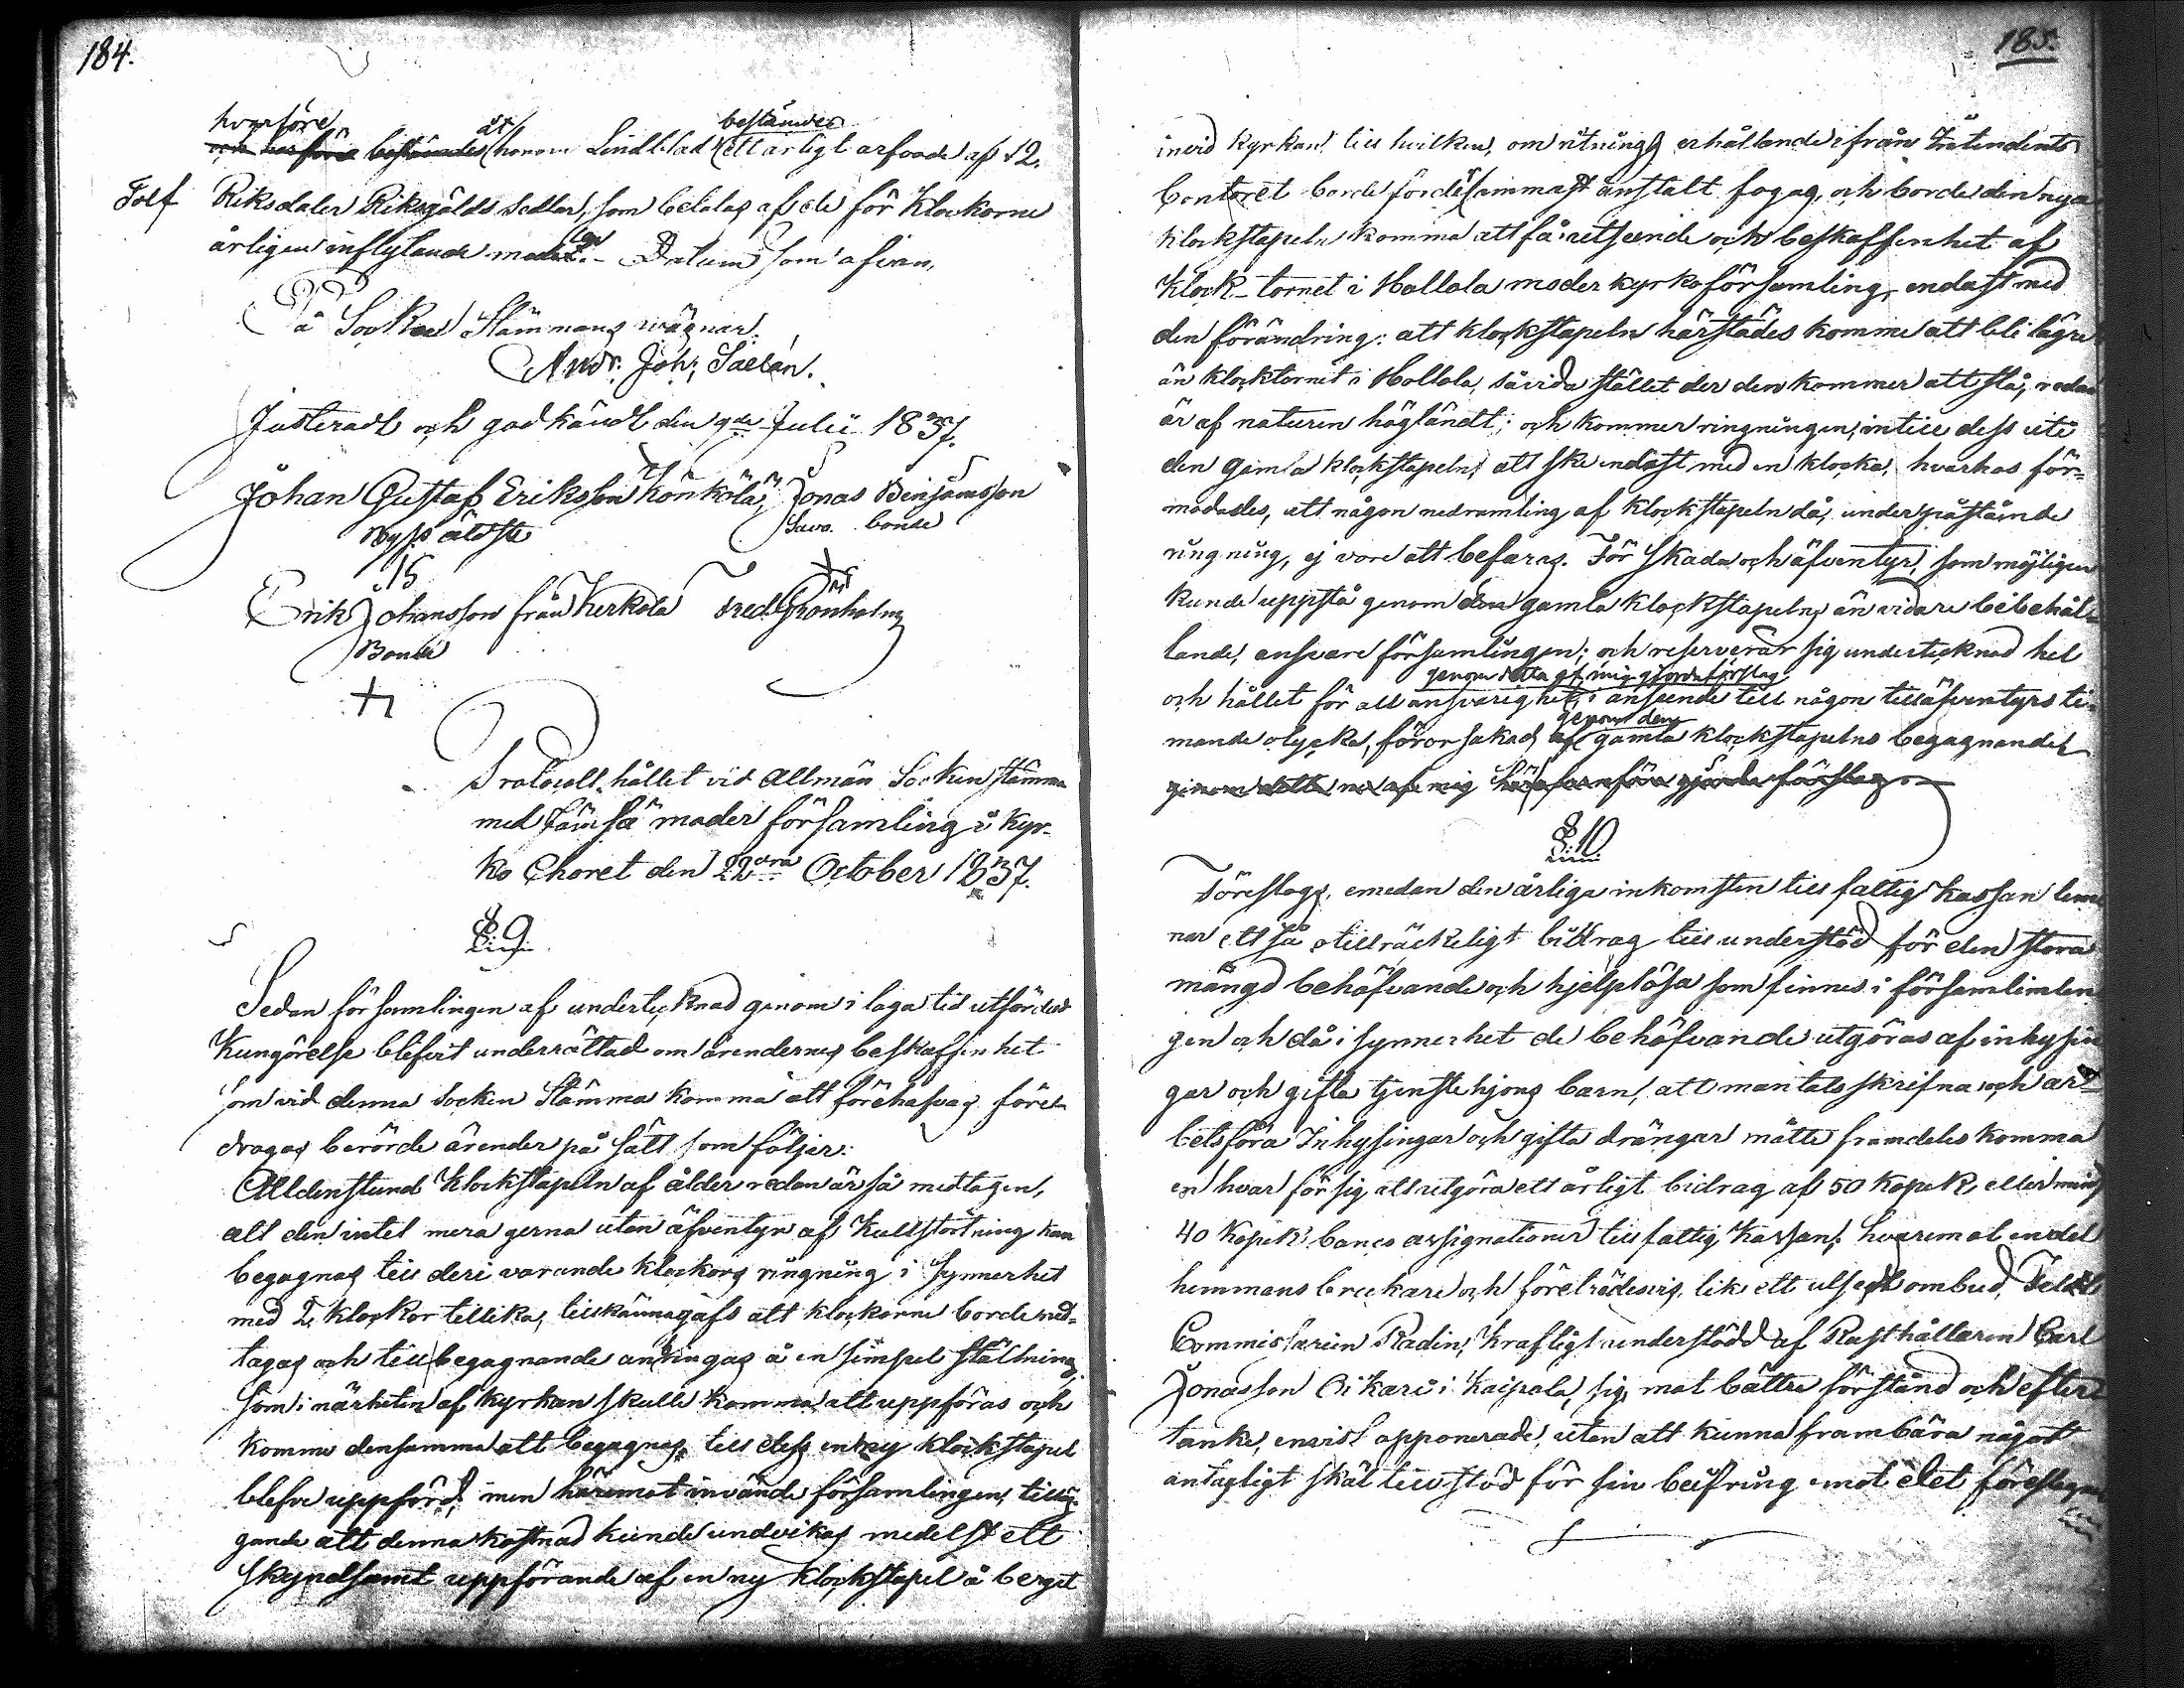 184.
hvarföre åt beståndes
honom Lindblad ett årligt arfvode af 12.
Tolf Riksdaler Riksgälds Sedlar, som betalas af de för Klockorne
årligen inflytande medel. Datum som ofvan.
På Sockne Stämmans vägnar.
And: Joh: Saelán.
Justeradt och godkändt den 9de Julii 1837.
Johan Gustaf Eriksson Jonas Benjamsson
äldste bonde
Erik Johansson från Kerkola Fred: Grönholm
Bonde
Protocoll hållet vid Allmän Sockenstämma
med Jämsä moder församling i Kyr-
ko Choret den 22dra October 1837.
§ 9.
Sedan församlingen af undertecknad genom i laga tid utfördad
Kungörelse blifvit underrättad om ärendernes beskaffenhet
som vid denna Socken Stämma komma att förehafvas före-
dragas berörde ärender på sätt som följer:
Alldenstund Klockstapeln af ålder redan är så medtagen,
att den intet mera gerna utan äfventyr af Kullstörtning kan
begagnas till deri varande klockors ringning i Synnerhet
med 2 klockor tillika, tillkännagafs att klockorne borde ned-
tagas och till begagnande anbringas å en simpel ställning,
som i närheten af kyrkan skulle komma att uppföras och
komme densamma att begagnas till dess en ny klockstapel
blefve uppförd; men häremot invände församlingen, tilläg-
gande att denna kostnad kunde undvikas medelst ett
skyndsamt uppförande af en ny klockstapel å berget
185.
invid kyrkan till hvilken, om ritnings erhållande ifrån Intendents
Contoret borde fördersammast anstalt fogas, och borde den nya
klockstapeln komma att få utseende och beskaffenhet af
Klock-tornet i Hollola moder kyrkoförsamling, endast med
den förändring: att klockstapeln härstädes komme att bli lägre
än klocktornet i Hollola, såvida stället der den kommer att stå, redan
är af naturen högländt; och kommer ringningen, intill dess uti
den gamla klockstapeln, att ske endast med en klocka, hvarhos för-
modades, att någon nedramling af klockstapeln då, under påstående
ringning, ej vore att befaras. För skada och äfventyr, som möjligen
kunde uppstå genom den gamla klockstapelns än vidare bibehål-
lande, ansvare församlingen; och reserverar sig undertecknad hel
genom detta af mig gjorda förslag
och hållet för all ansvarighet i anseende till någon tilläfventyrs ti-
genom den
mande olycka, förorsakad af gamla klockstapelns begagnandet
genom detta nu af mig härofvanföre gjorda förslag
§ 10
Föreslogs, emedan den årliga inkomsten till fattig kassan lem-
nar ett så otillräckeligt bidrag till understöd för den stora
mängd behöfvande och hjelplösa som finnes i församlimlen
gen och då i synnerhet de behöfvande utgöras af inhysin
gar och gifta tjenstehjons barn, att mantalsskrifna och ar-
betsföra Inhysingar och gifta drängar måtte framdeles komma
en hvar för sig att utgöra ett årligt bidrag af 50 kopek, eller minst
40 kopek banco assignationer till fattig kassan; hvaremot en del
hemmans brukare och företrädesvis, lik ett utsedt ombud, Feldt
Commissarien Radin, kraftigt understödd af Rusthållaren Carl
Jonasson Oikari i Kaipola, sig mot bättre förstånd och efter-
tanke, envist opponerade, utan att kunna frambära något
antagligt skäl till stöd för sin beifring emot det föreslagna